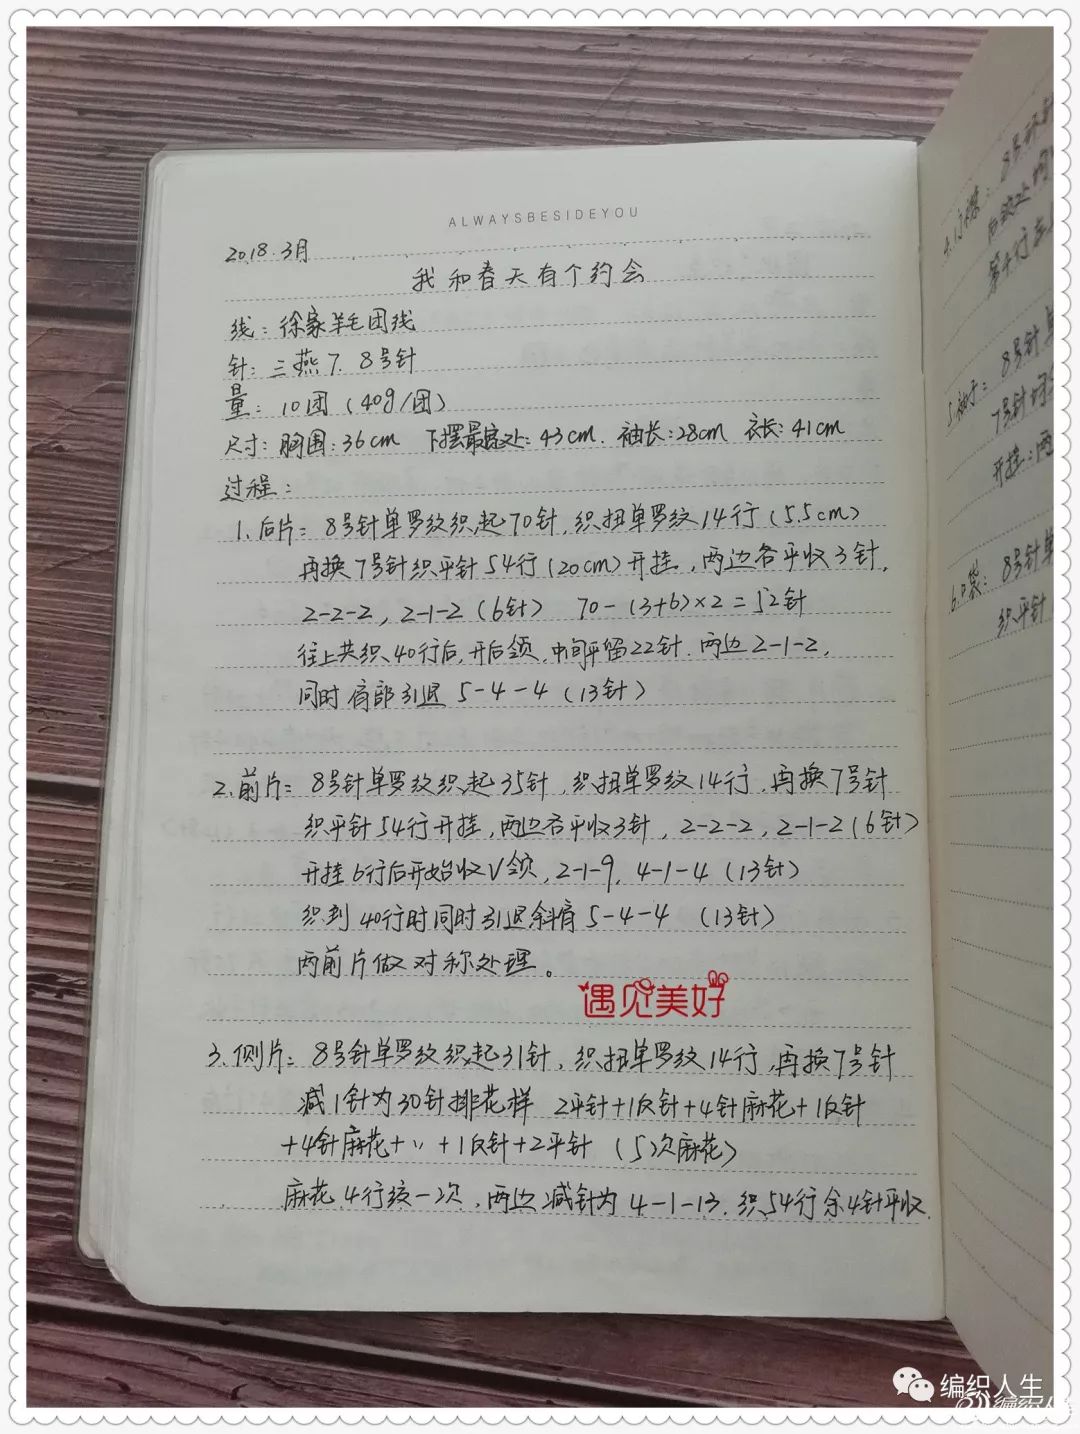 ALWAYSBESIDEYOU
2018.3月
我和春天有个约会
线：徐家羊毛团线
针：三燕7.8号针
量：10团（40g/团）
尺寸：胸围：36cm 下摆最宽处：43cm. 袖长：28cm 衣长：41cm
过程：
1.后片：8号针单罗纹织起70针，织扭单罗纹14行（5.5cm）
再换7号针织平针54行（20cm）开挂，两边各平收3针，
2-2-2，2-1-2（6针） 70-（3+6）×2=52针
往上共织40行后，开后领，中间平留22针．两边2-1-2，
同时肩部引退 5-4-4（13针）
2.前片：8号针单罗纹织起35针，织扭单罗纹14行．再换7号针
织平针54行开挂，两边各平收3针，2-2-2，2-1-2（6针）
开挂6行后开始收V领，2-1-9，4-1-4（13针）
织到40行时同时引退斜肩5-4-4 （13针）
两前片做对称处理。
遇见美好
3.侧片：8号针单罗纹织起31针，织扭单罗纹14行，再换7号针
减1针为30针排花样 2平针+1反针+4针麻花+1反针
+4针麻花+〃+1反针+2平针 （5次麻花）
麻花4行绞一次，两边减针为4-1-13．织54行余4针平收．
4.
8号
第4行
5.袖子：8号针
7号针
开挂：两
6.口袋：8号针单
织平针
编织人生
编织人生